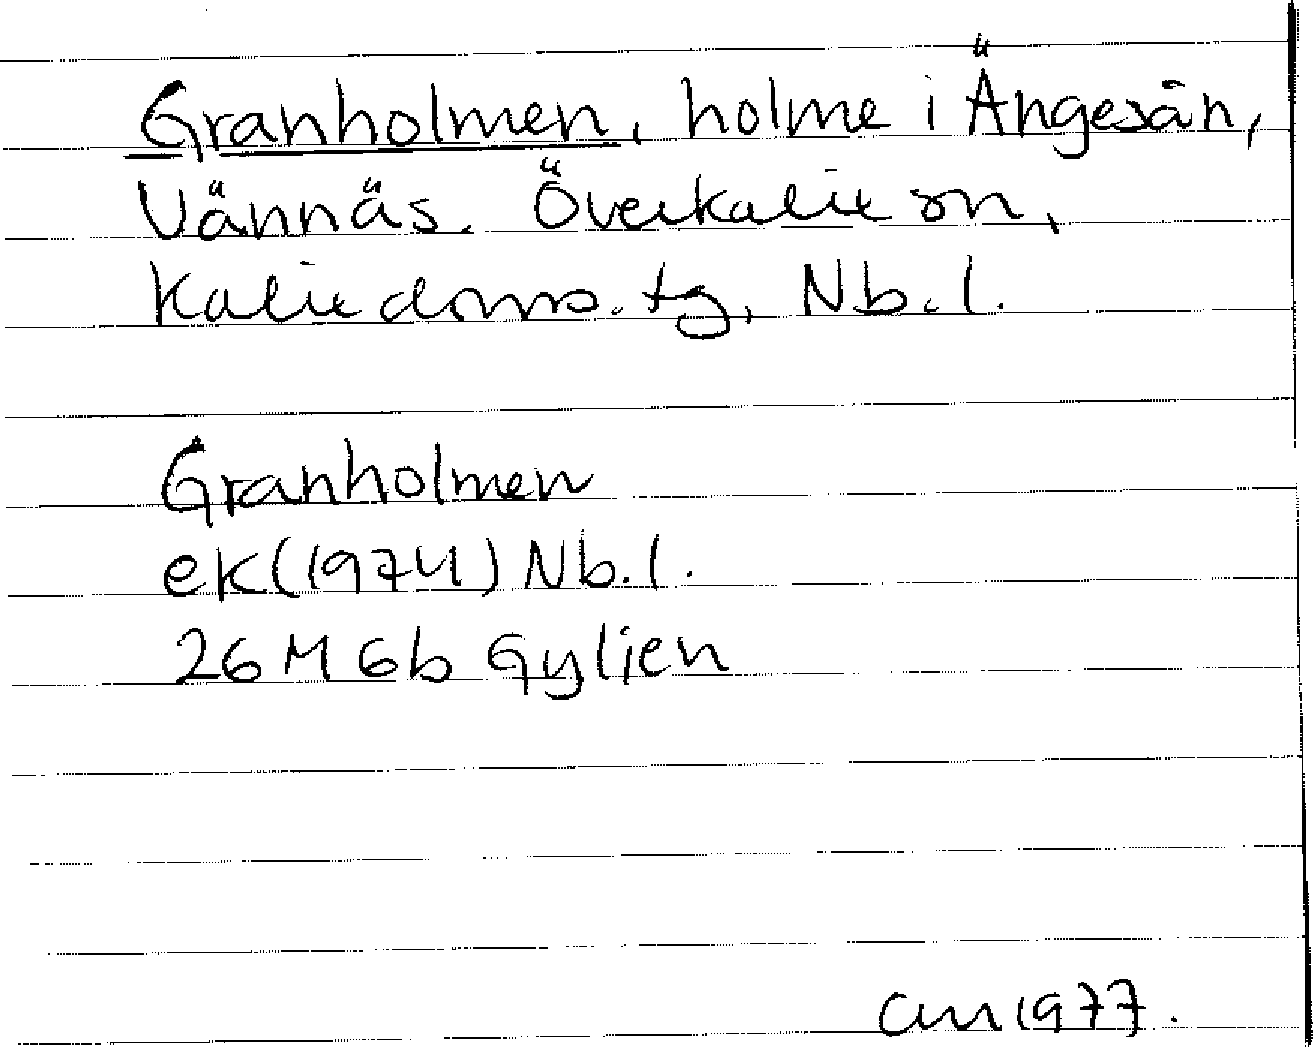 Granholmen, holme i Ängesån,
Vännäs. Överkalix sn,
Kalix doms. tg, Nb. l.
Granholmen
ek (1974) Nb. l.
26 M 6b Gyljen
CM 1977.